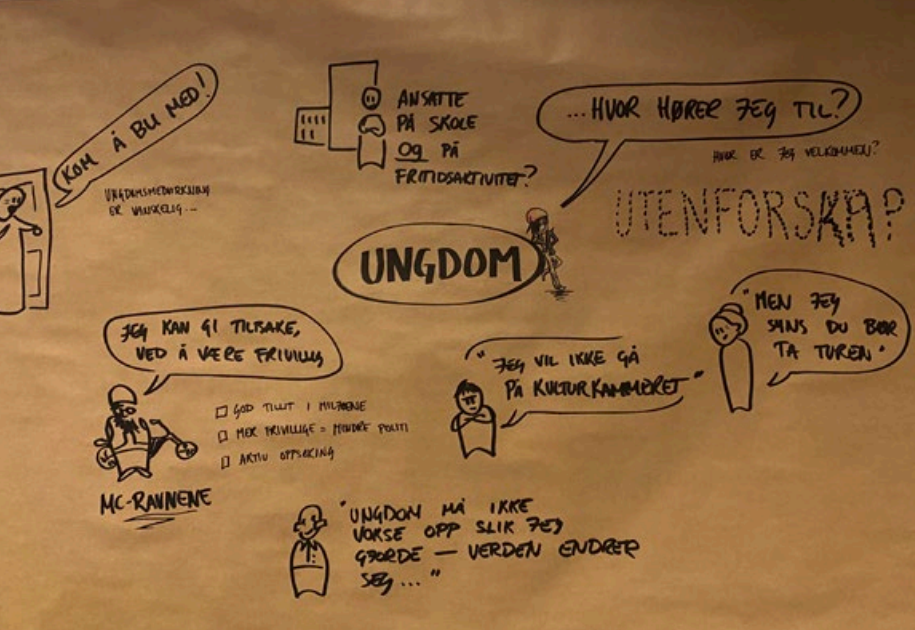 KOM Å BLI MED!
UNGDOMSMEDVIRKNING
ER VANSKELIG...
ANSATTE
PÅ SKOLE
OG PÅ
FRITIDSAKTIVITET?
...HVOR HØRER JEG TIL?
HVOR ER JEG VELKOMMEN?
UTENFORSKAP?
UNGDOM
JEG KAN GI TILBAKE,
VED Å VÆRE FRIVILLIG
GOD TILLIT I MILJØENE
MER FRIVILLIGE = MINDRE POLITI
AKTIV OPPSØKING
MC-RAVNENE
"JEG VIL IKKE GÅ
PÅ KULTURKAMMERET"
"MEN JEG
SYNS DU BØR
TA TUREN"
"UNGDOM MÅ IKKE
VOKSE OPP SLIK JEG
GJORDE — VERDEN ENDRER
SEG..."